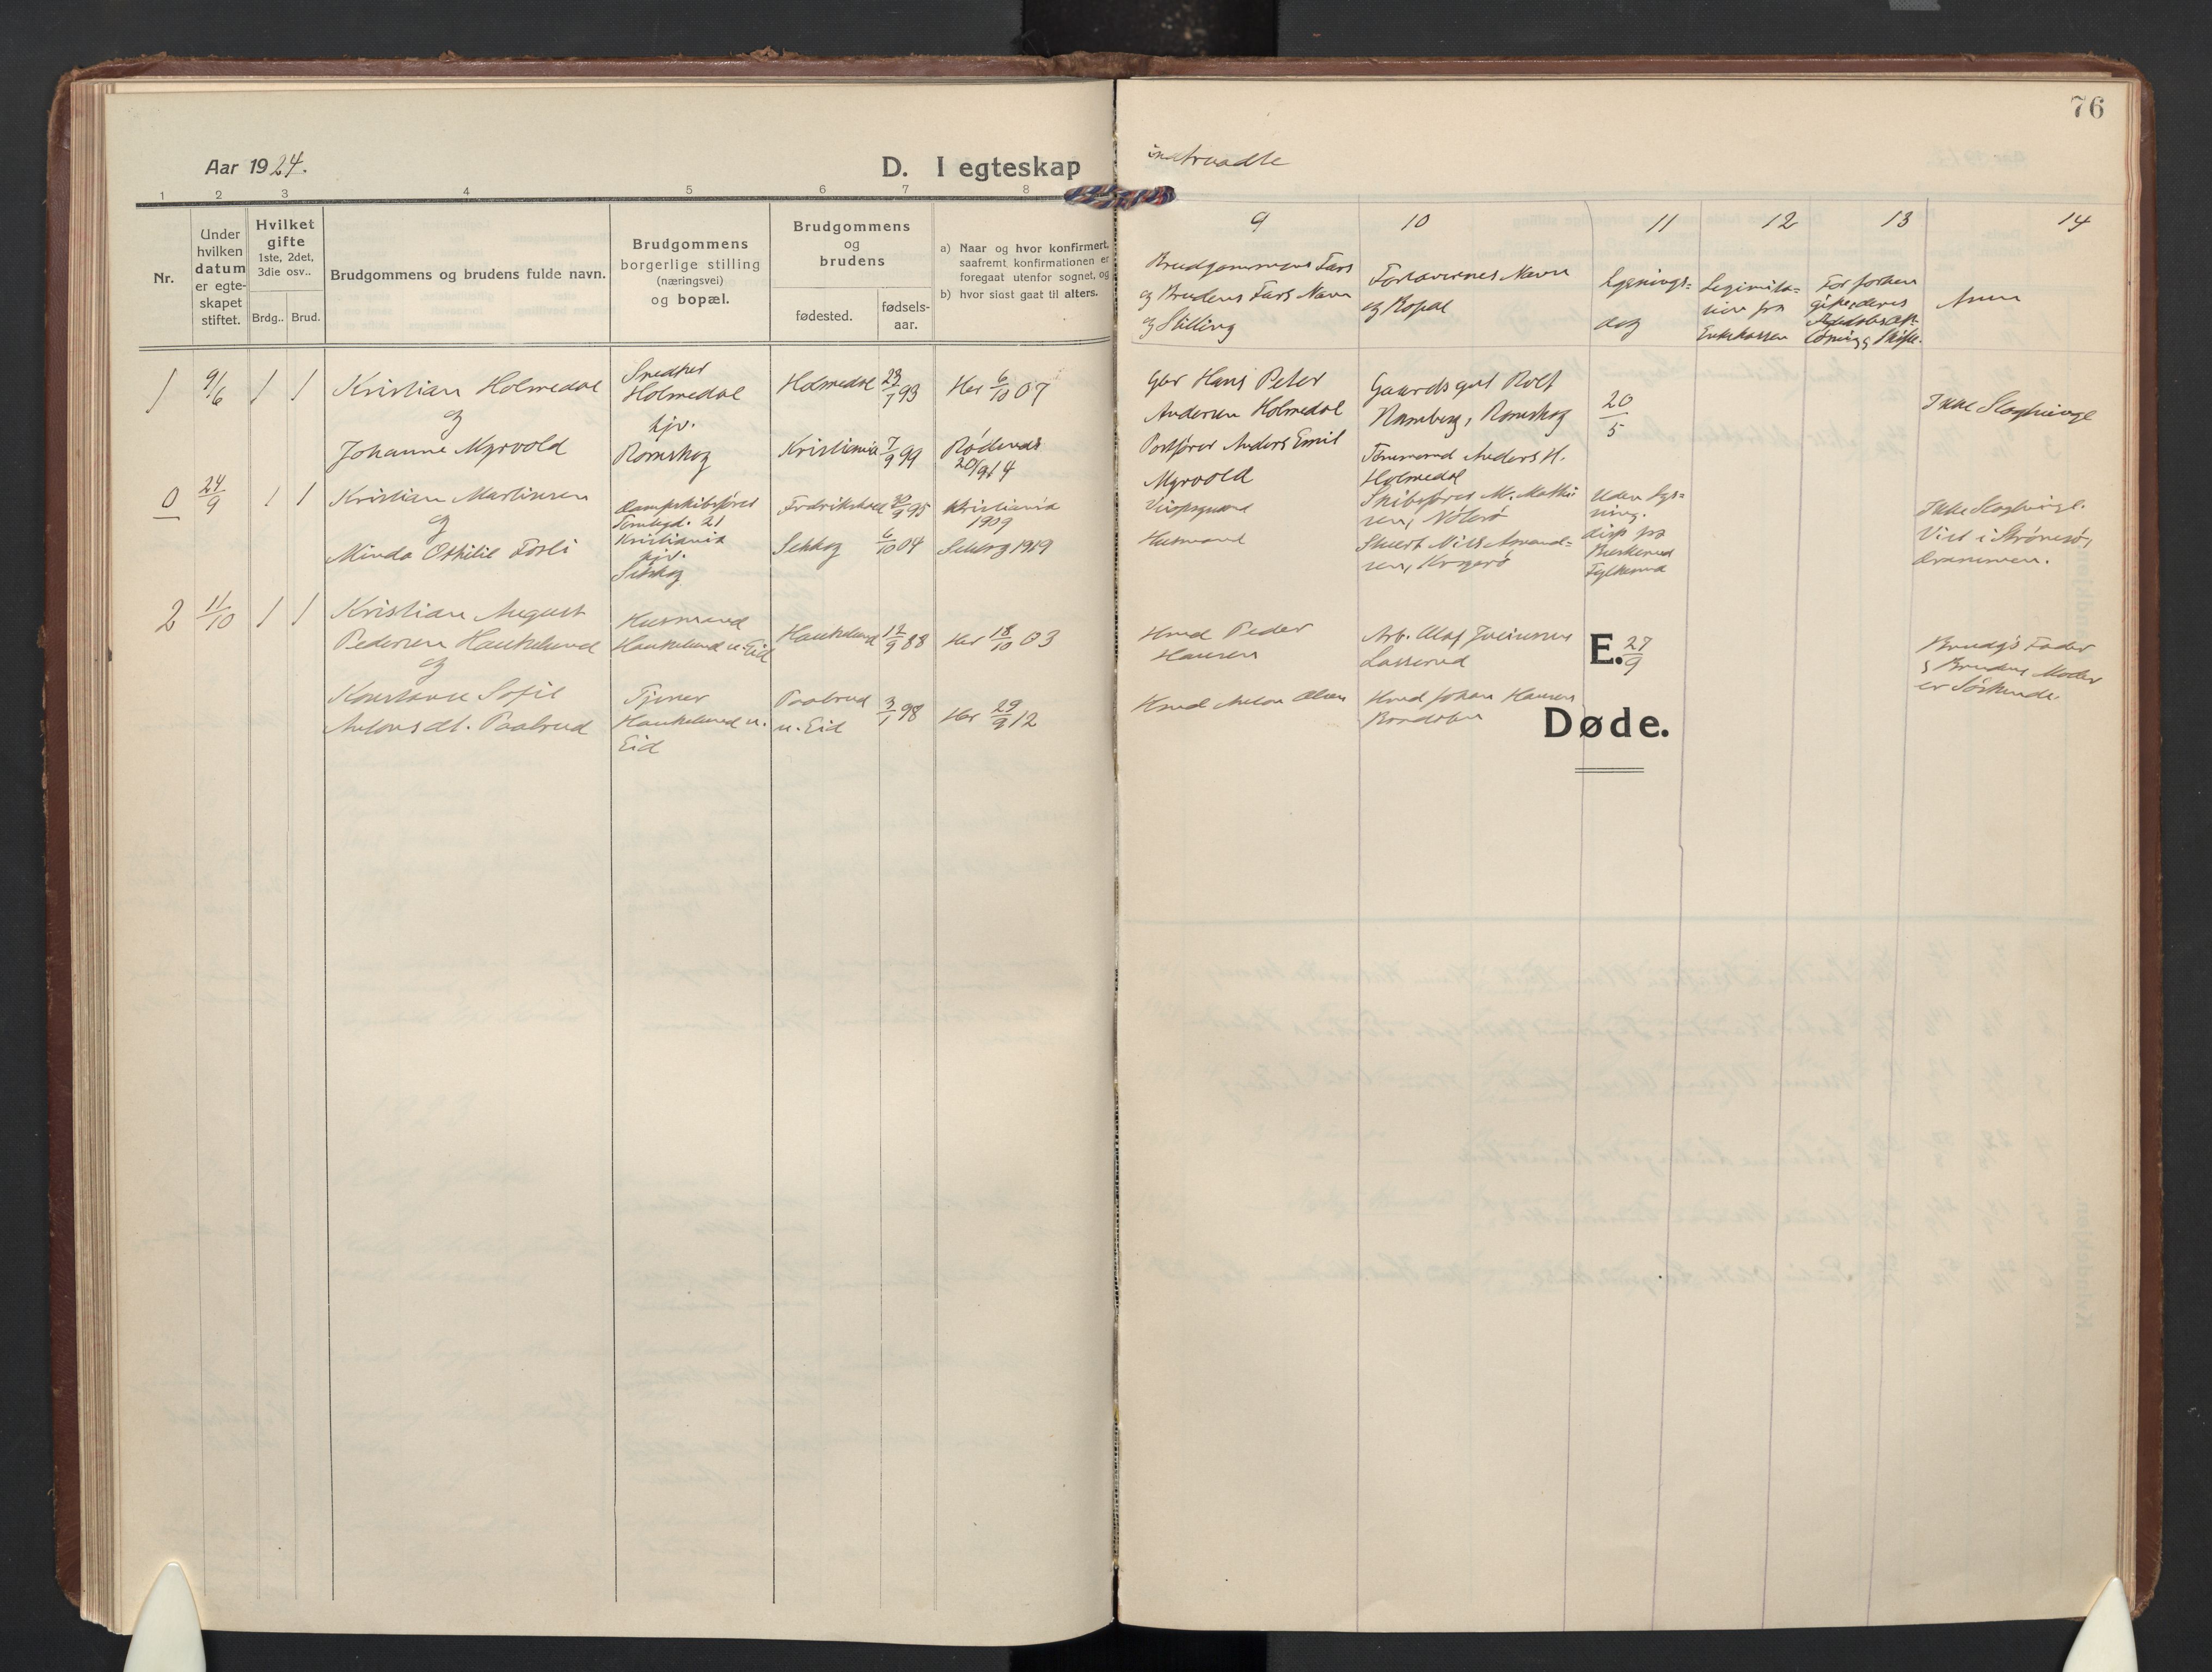 76
Aar 1924.
D. I egteskap
indtraadte
1 2 3 4 5 6 7 8
9 10 11 12 13 14
Nr.
Under
hvilken
datum
er egte-
skapet
stiftet.
Hvilket
gifte
1ste, 2det,
3die osv..
Brdg.. Brud.
Brudgommens og brudens fulde navn.
Brudgommens
borgerlige stilling
(næringsvei)
og bopæl.
Brudgommens
og
brudens
fødested.
fødsels-
aar.
a) Naar og hvor konfirmert,
saafremt konfirmationen er
foregaat utenfor sognet, og
b) hvor sidst gaat til alters.
Brudgommens Fars
og Brudens Fars Navn
og Stilling
Forlovernes Navn
og Bopæl
Lysnings-
dag
Legimita-
tion fra
Enkekassen
For forhen
gifte, deres
Skifte.
Anm
1 9/6 1 1
Kristian Holmedal
og
Johanne Myrvold
Snedker
Holmedal
hjv.
Romskog
Holmedal 23/1 93
Her 6/10 07
Kristiania 7/9 99
Rødenes
20/9 14
Gbr Hans Peter
Andersen Holmedal
Anders Emil
Myrvold
Gaardsgut Rolf
Ramberg, Romskog
Tømmermand Anders H.
Holmedal
20/5
Ikke Slegtninge
0 24/9 1 1
Kristian Martinsen
og
Minda Othilie Fosli
Dampskibsfører
Tornbygd. 21
Kristiania
hjv.
Setskog
Fredrikshald 30/9 95
Kristiania
1909
Setskog 6/10 04
Setskog 1919
Husmand
Skibsfører M. Mathi
sen, Nøterø
Stuert Nils Amand-
sen, Kragerø
Uden Lys-
ning.
disp fra
Buskerud
Fylkesmand
Ikke Slegtninge.
Viet i Strømsø,
Drammen.
2 11/10 1 1
Kristian August
Pedersen Haukelund
og
Konstanse Sofie
Antonsdt. Paalsrud
Husmand
Haukelund u. Eid
Tjener
Haukelund u.
Eid
Haukelund 12/9 88
Her 18/10 03
Paalsrud
u. Eid
3/1 98
Her 29/9 12
Hmd Peder
Hansen
Hmd Anton Olsen
Arb. Olaf
Lasserud
Hmd Johan Hansen
27/9
Brudg's Fader
& Brudens Moder
er Søskende.
E.
Døde.